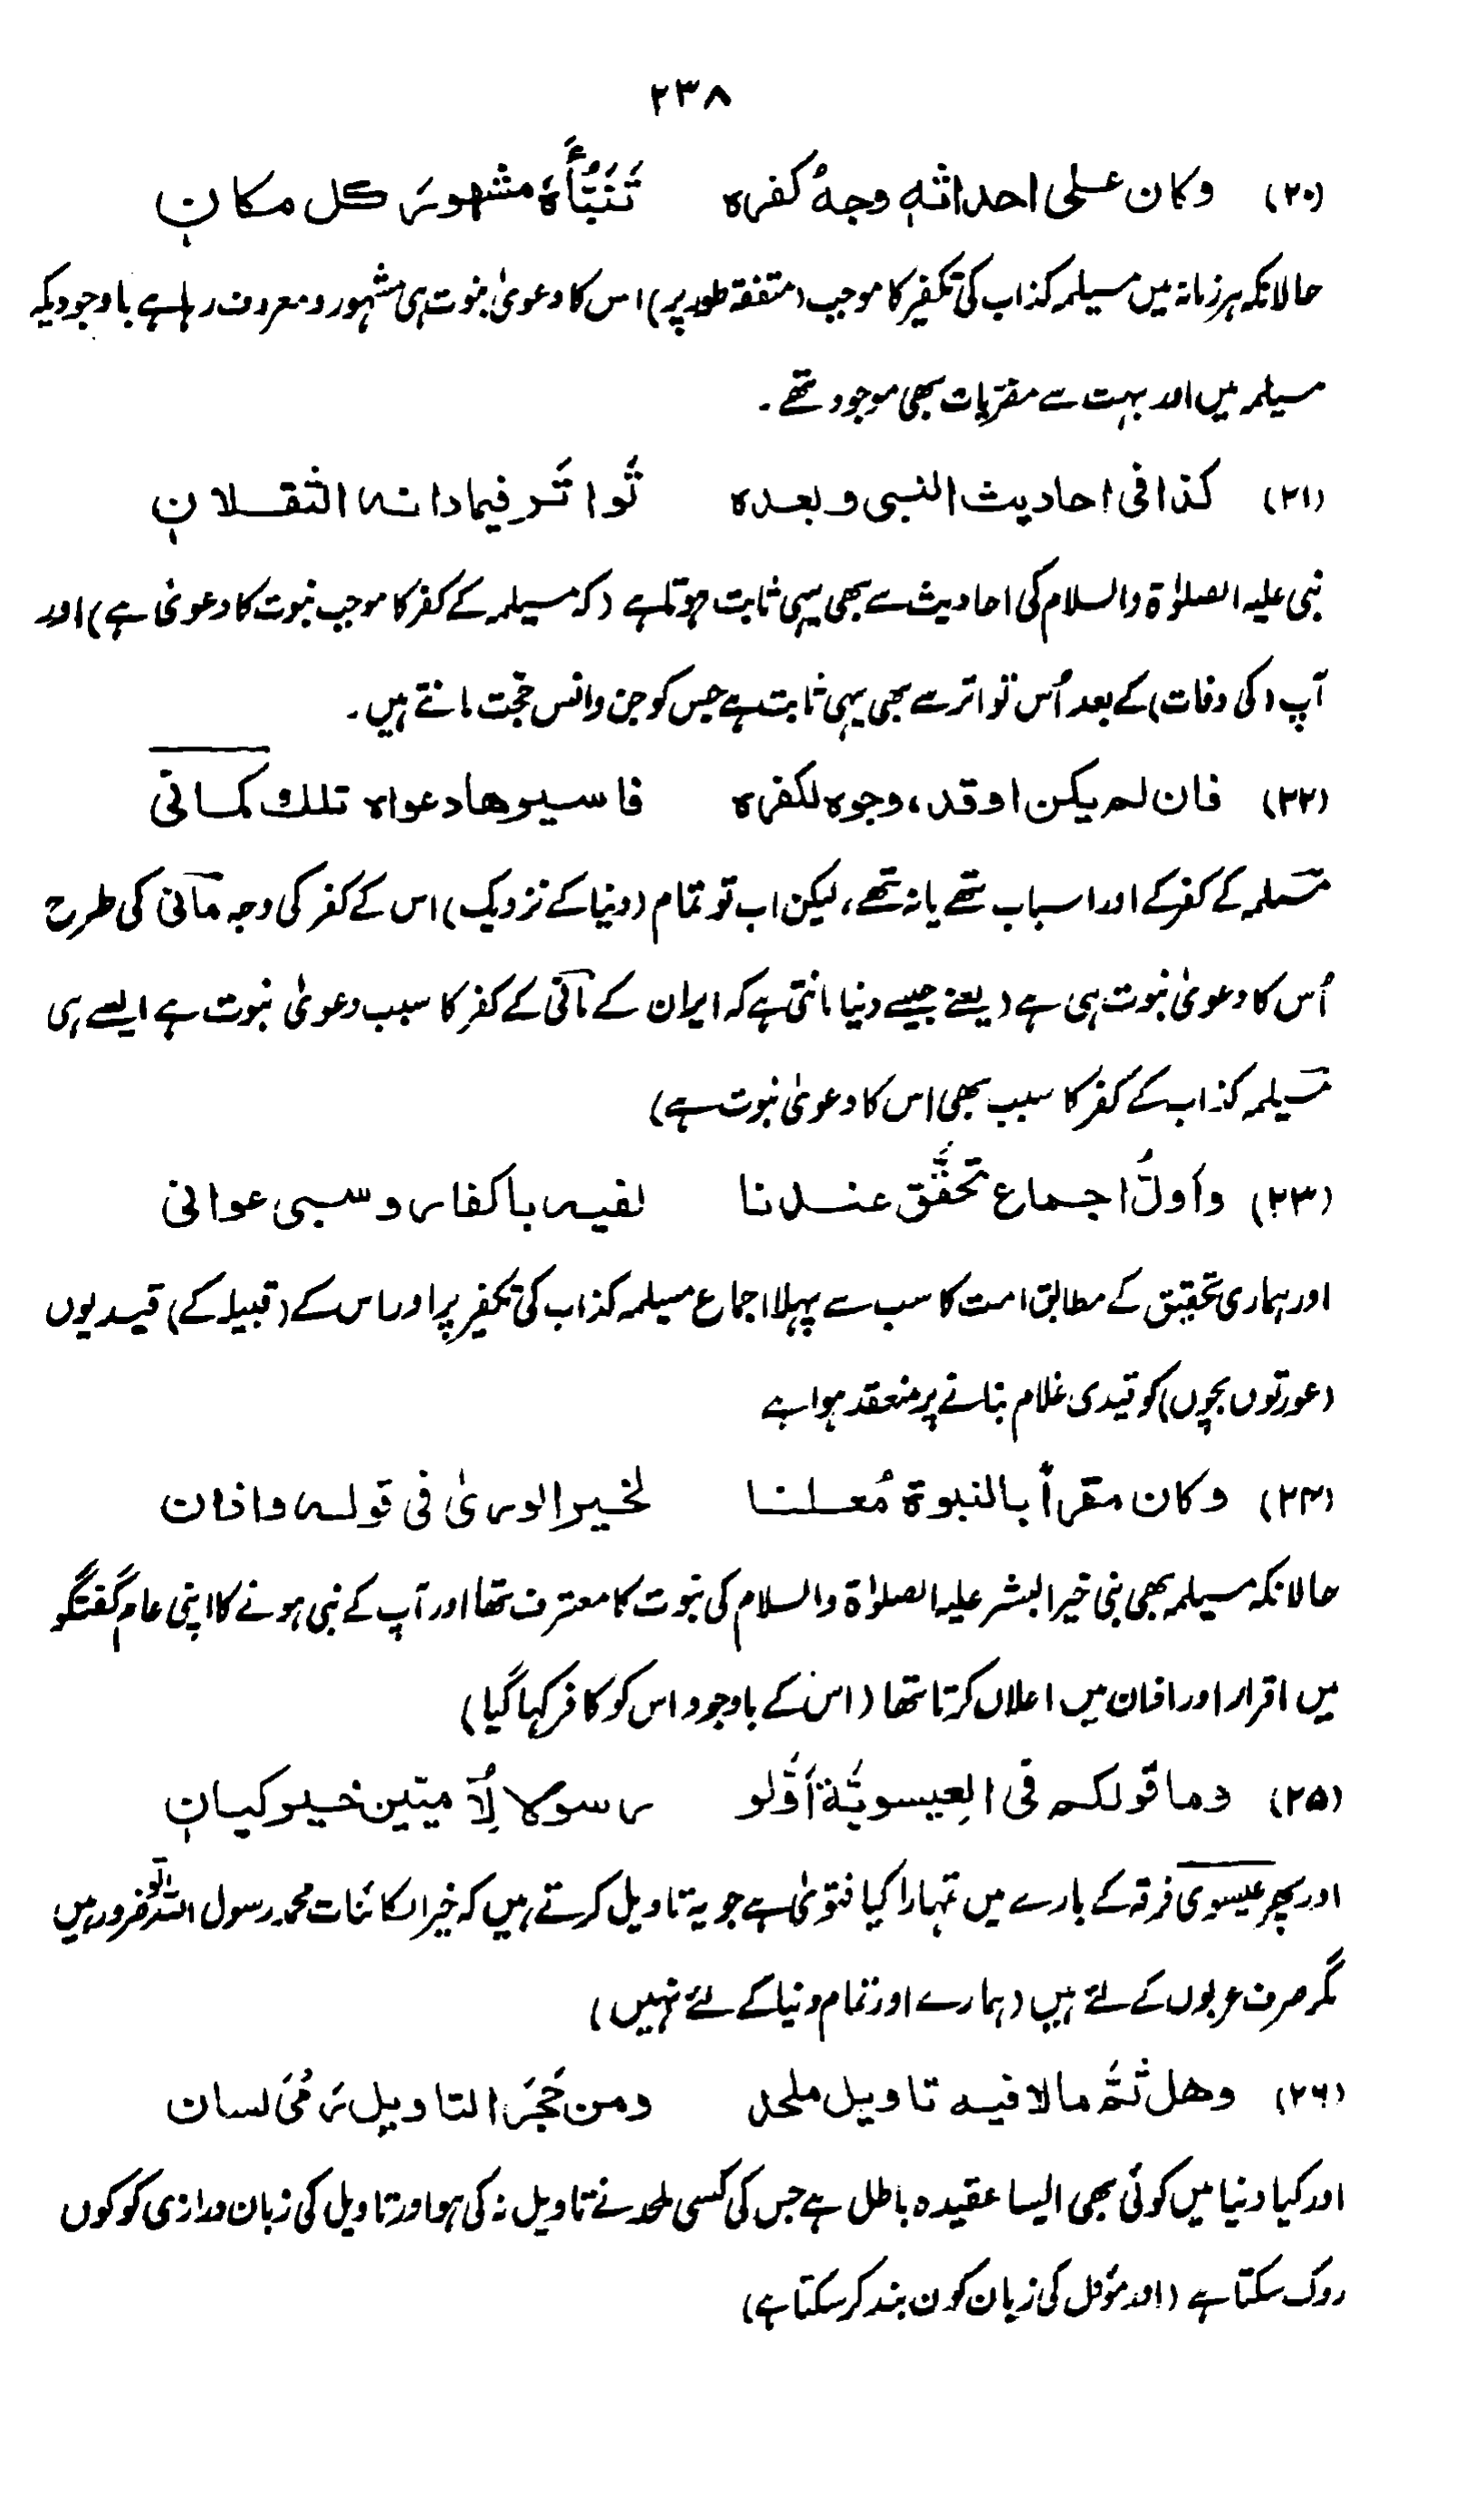 ۲۳۸
(۲۰) وکان علی احداثہٖ وجہُ کفرہ تَنَبُّأَہٗ مشہورَ کل مکانٖ
حالانکہ ہر زمانہ میں مسیلمہ کذاب کی تکفیر کا موجب (متفقہ طور پر) اس کا دعویٰ نبوت ہی مشہور و معروف رہا ہے باوجودیکہ
مسیلمہ میں اور بہت سے مفتریات بھی موجود تھے۔
(۲۱) کذا فی احادیث النبی وبعدہ تَواتَر فیما دانہ الثقلانٖ
نبی علیہ الصلوٰۃ والسلام کی احادیث سے بھی یہی ثابت ہوتا ہے (کہ مسیلمہ کے کفر کا موجب نبوت کا دعویٰ ہے) اور
آپ (کی وفات) کے بعد اُس تواتر سے بھی یہی ثابت ہے جس کو جن وانس حجت مانتے ہیں۔
(۲۲) فان لم یکن اوقد، وجوہ لکفرہ فاسیرھا دعواہ تلک کمانی
مسیلمہ کے کفر کے اور اسباب تھے یا نہ تھے، لیکن اب تو تمام (دنیا کے نزدیک) اس کے کفر کی وجہ مانی کی طرح
اُس کا دعویٰ نبوت ہی ہے (یعنے جیسے دنیا مانتی ہے کہ ایران کے مانی کے کفر کا سبب دعویٰ نبوت ہے ایسے ہی
مسیلمہ کذاب کے کفر کا سبب بھی اس کا دعویٰ نبوت ہے)
(۲۳) واَولُ اجماع تحقَّق عندنا لفیہ باکفار وسبی عوانی
اور ہماری تحقیق کے مطابق امت کا سب سے پہلا اجماع مسیلمہ کذاب کی تکفیر پر اور اس کے (قبیلہ کے) قیدیوں
(عورتوں بچوں) کو قیدی غلام بنانے پر منعقد ہوا ہے
(۲۴) وکان مقراً بالنبوۃ مُعلنا لخیر الوریٰ فی قولہ واذان
حالانکہ مسیلمہ بھی نبی خیر البشر علیہ الصلوٰۃ والسلام کی نبوت کا معترف تھا اور آپ کے نبی ہونے کا اپنی عام گفتگو
میں اقرار اور اذان میں اعلان کرتا تھا (اس کے باوجود اس کو کافر کہا گیا)
(۲۵) وما قولکم فی العِیسویَّۃ اَوَّلو رسولا لِاُمیّین خیر کیانٖ
اور پھر عیسوی فرقہ کے بارے میں تمہارا کیا فتویٰ ہے جو یہ تاویل کرتے ہیں کہ خیر الکائنات محمد رسول اللہ تو ضرور ہیں
مگر صرف عربوں کے لئے ہیں (ہمارے اور تمام دنیا کے لئے نہیں)
(۲۶) وھل ثَمَّ مالا فیہ تاویل ملحد ومن حَجَرَ التاویلِ رَمَیَ لسان
اور کیا دنیا میں کوئی بھی ایسا عقیدہ باطل ہے جس کی کسی ملحد نے تاویل نہ کی ہو اور تاویل کی زبان درازی کو کون
روک سکتا ہے (اور مؤل کی زبان کون بند کر سکتا ہے)